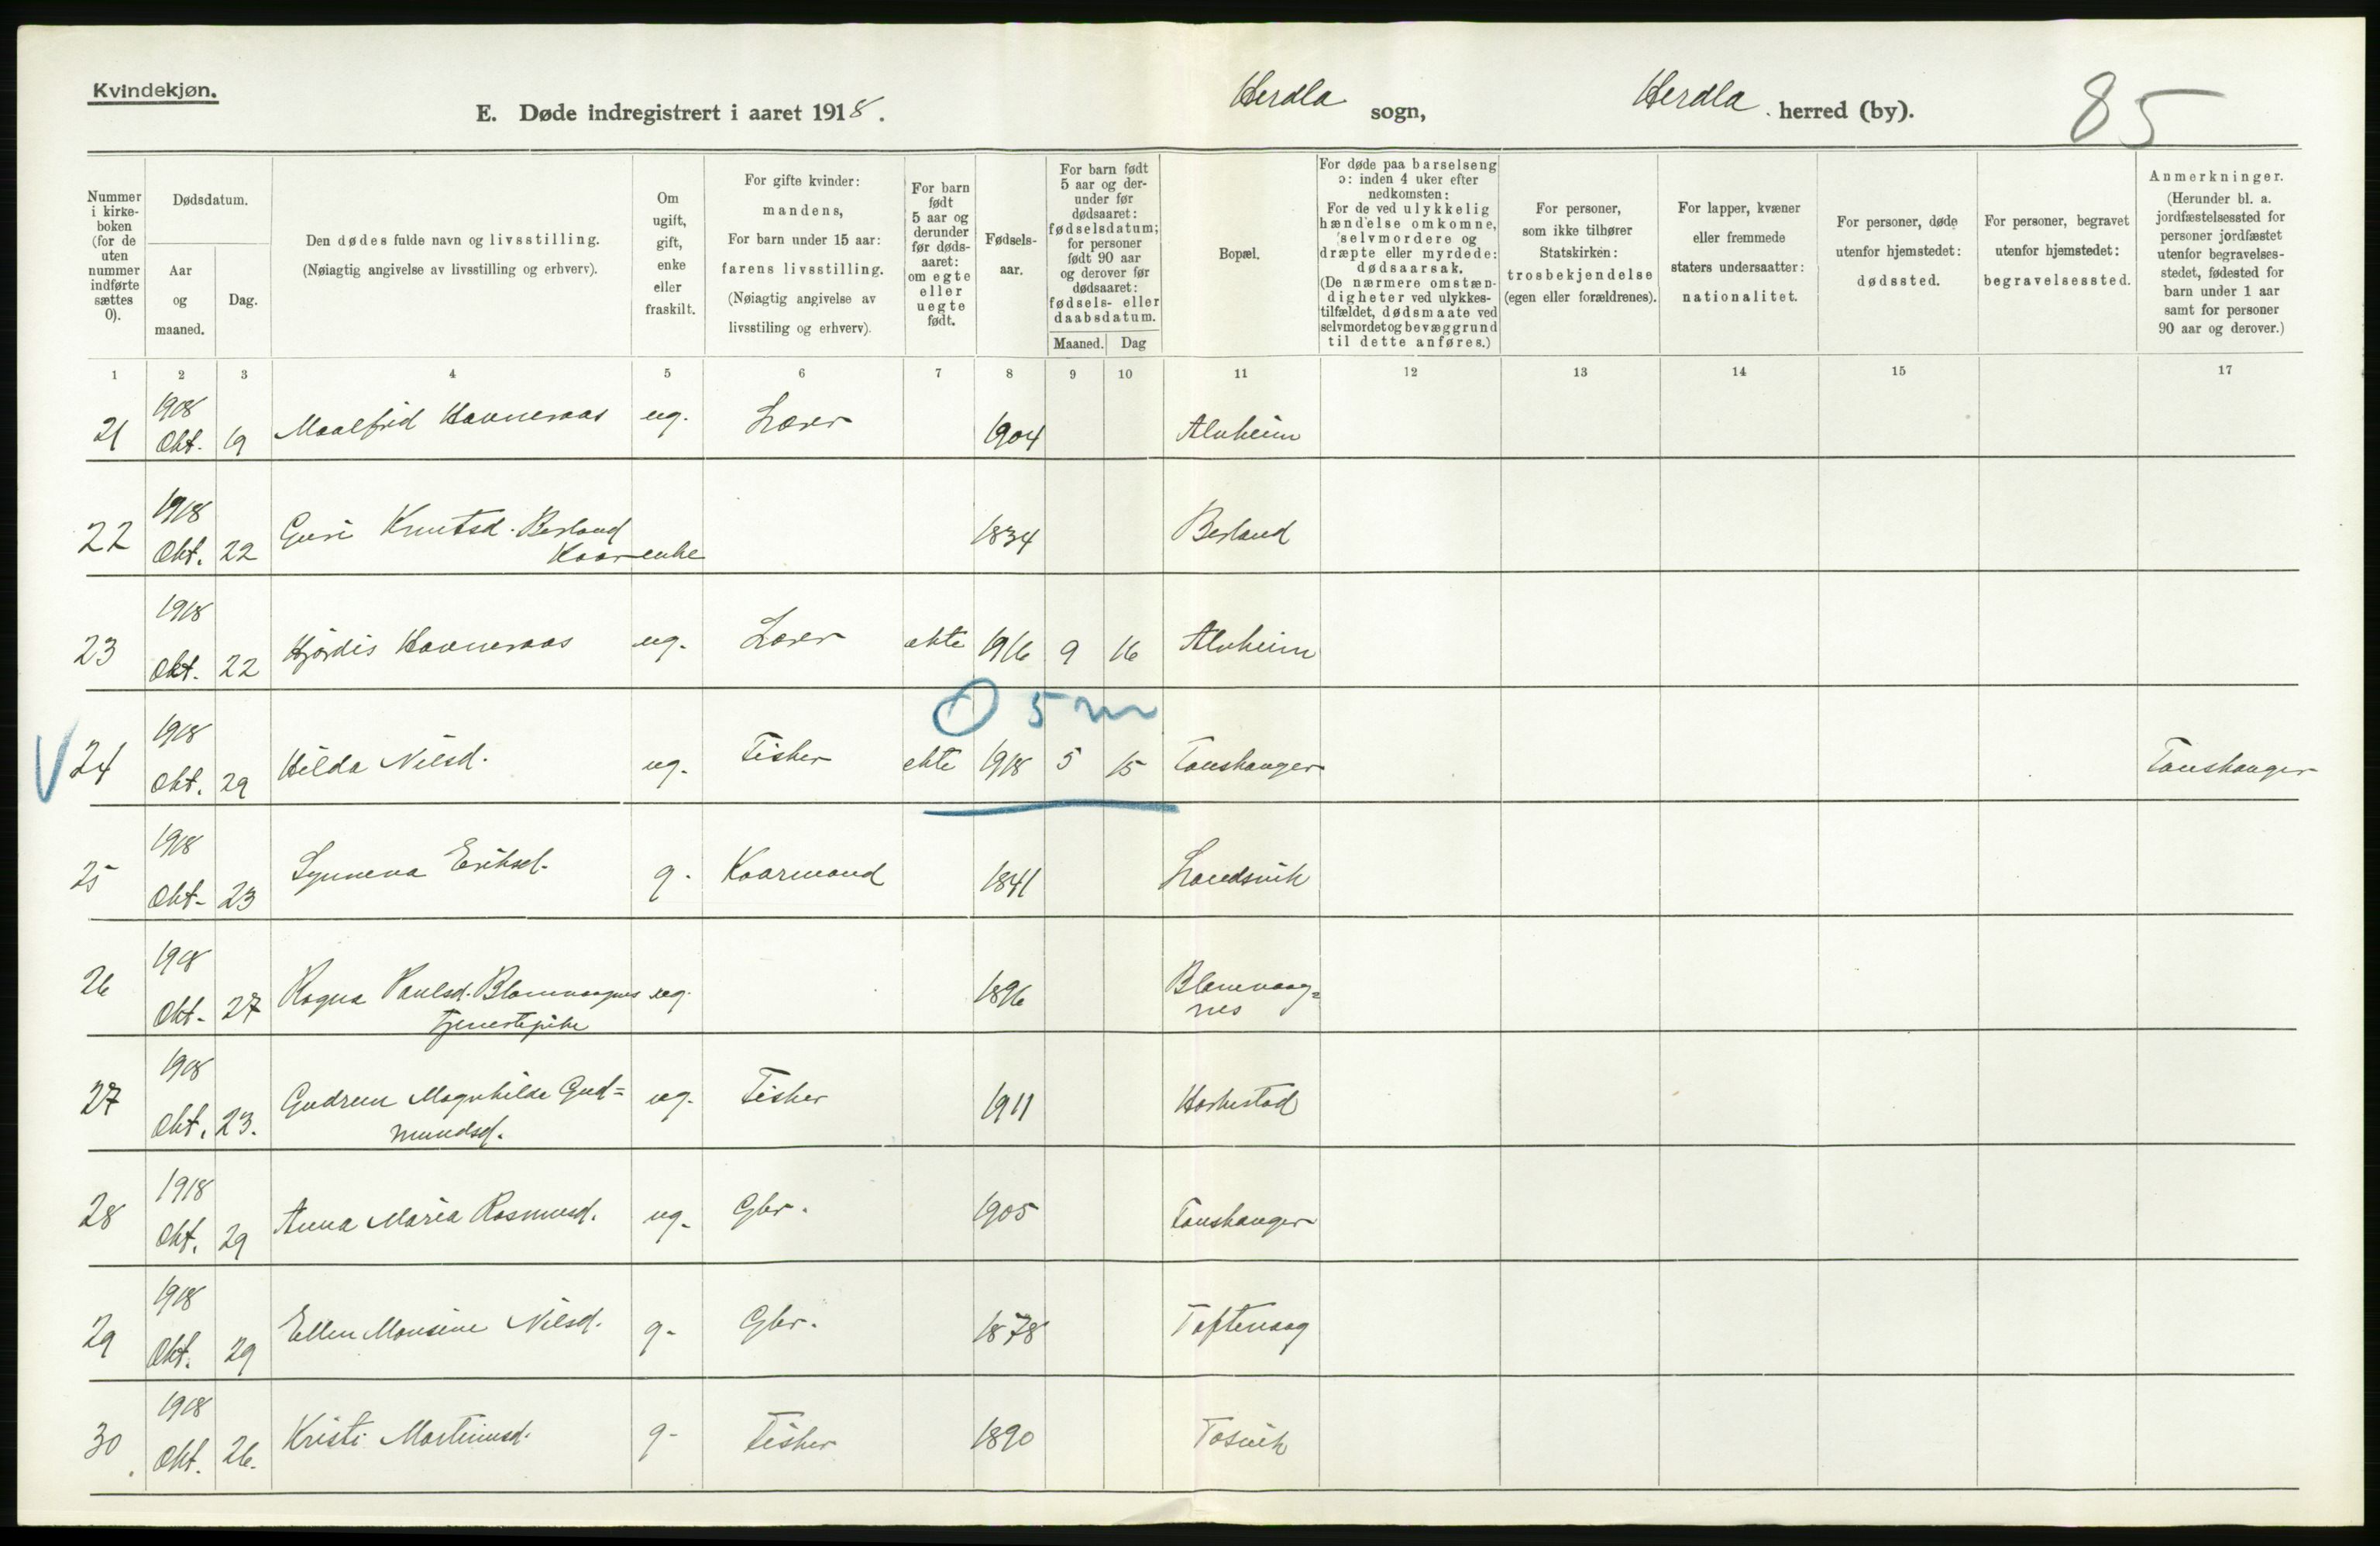 Kvindekjøn.
E. Døde indregistrert i aaret 1918.
Herdla sogn,
Herdla herred (by).
85
Nummer i kirke-boken (for de uten nummer indførte sættes 0).
Dødsdatum.
Aar og maaned.
Dag.
Den dødes fulde navn og livsstilling.
(Nøiagtig angivelse av livsstilling og erhverv).
Om ugift, gift, enke eller fraskilt.
For gifte kvinder: mandens, For barn under 15 aar: farens livsstilling. (Nøiagtig angivelse av livsstiling og erhverv).
For barn født 5 aar og derunder før døds-aaret: om egte eller uegte født.
Fødsels-aar.
For barn født 5 aar og der-under før dødsaaret: fødselsdatum; for personer født 90 aar og derover før dødsaaret: fødsels- eller daabsdatum.
Maaned. Dag
Bopæl.
For døde paa barselseng ɔ: inden 4 uker efter nedkomsten: For de ved ulykkelig hændelse omkomne, selvmordere og dræpte eller myrdede: dødsaarsak. (De nærmere omstæn-digheter ved ulykkes-tilfældet, dødsmaate ved selvmordet og bevæggrund til dette anføres.)
For personer, som ikke tilhører Statskirken: trosbekjendelse (egen eller forældrenes).
For lapper, kvæner eller fremmede staters undersaatter: nationalitet.
For personer, døde utenfor hjemstedet: dødssted.
For personer, begravet utenfor hjemstedet: begravelsessted.
Anmerkninger. (Herunder bl. a. jordfæstelsessted for personer jordfæstet utenfor begravelses-stedet, fødested for barn under 1 aar samt for personer 90 aar og derover.)
1 2 3 4 5 6 7 8 9 10 11 12 13 14 15 17
21 1918 Okt. 19 Maalfrid Havneraas ug. Lærer 1904 Alvheim
22 1918 Okt. 22 Guri Knutsd. Berland
Kaarenke 1834 Berland
23 1918 Okt. 22 Hjørdis Havneraas ug. Lærer ekte 1916 9 16 Alvheim
5 m
V 24 1918 Okt. 29 Hilda Nilsd. ug. Fisker ekte 1918 5 15 Toushanger Toushanger
25 1918 Okt. 23 Synneva Eriksd. g. Kaarmand 1841 Landsvik
26 1918 Okt. 27 Ragna Paulsd. Blomvaagnes ug. 1896 Blomvaag=
tjenestepike nes
27 1918 Okt. 23. Gudrun Magnhilde Gud= ug. Fisker 1911
mundsd.
28 1918 Okt. 29 Anna Maria Rasmusd. ug. Gbr. 1905 Toushanger
29 1918 Okt. 29 Ellen Monsine Nilsd. g. Gbr. 1878 Toftevaag
30 1918 Okt. 26. Kristi Martinusd. g. Fisker 1890 Tosvik